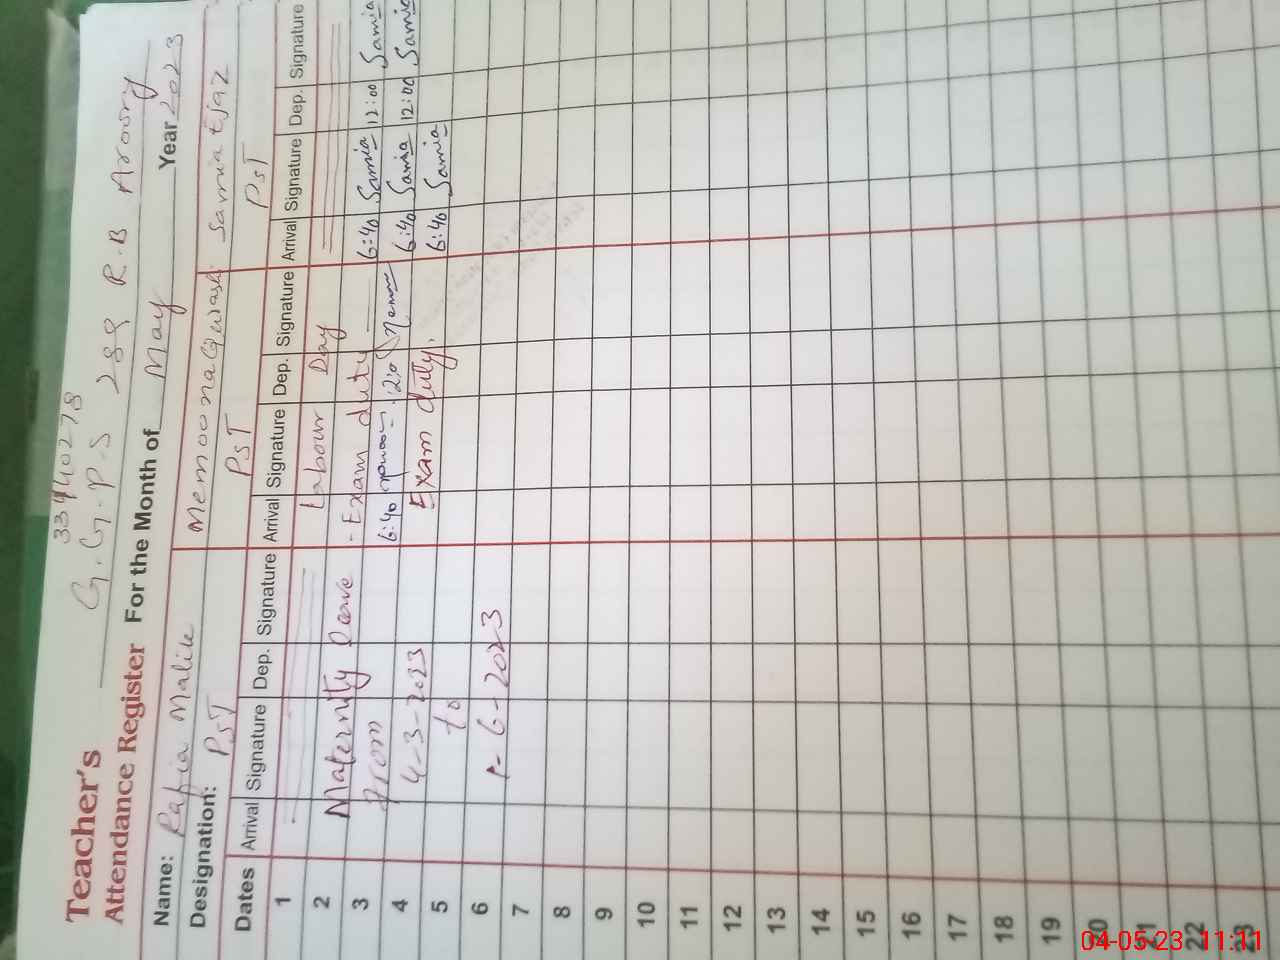 33440278
Teacher's G.G.P.S 289 R.B Aroory
Attendance Register For the Month of May Year 2023
Name: Rafia Malik Memoona Qurashi Samia Ejaz
Designation: PST PST PST
Dates Arrival Signature Dep. Signature Arrival Signature Dep. Signature Arrival Signature Dep. Signature
1 Labour Day
2 Maternity Leave - Exam duty 6:40 Samia 12:00 Samia
3 From 6:40 6:40 Samia 12:00 Samia
4 4-3-2023 Exam duty. 6:40 Samia
5 to
6 1-6-2023
7
8
9
10
11
12
13
14
15
16
17
18
19
20
21
22
23
04-05-23 11:11